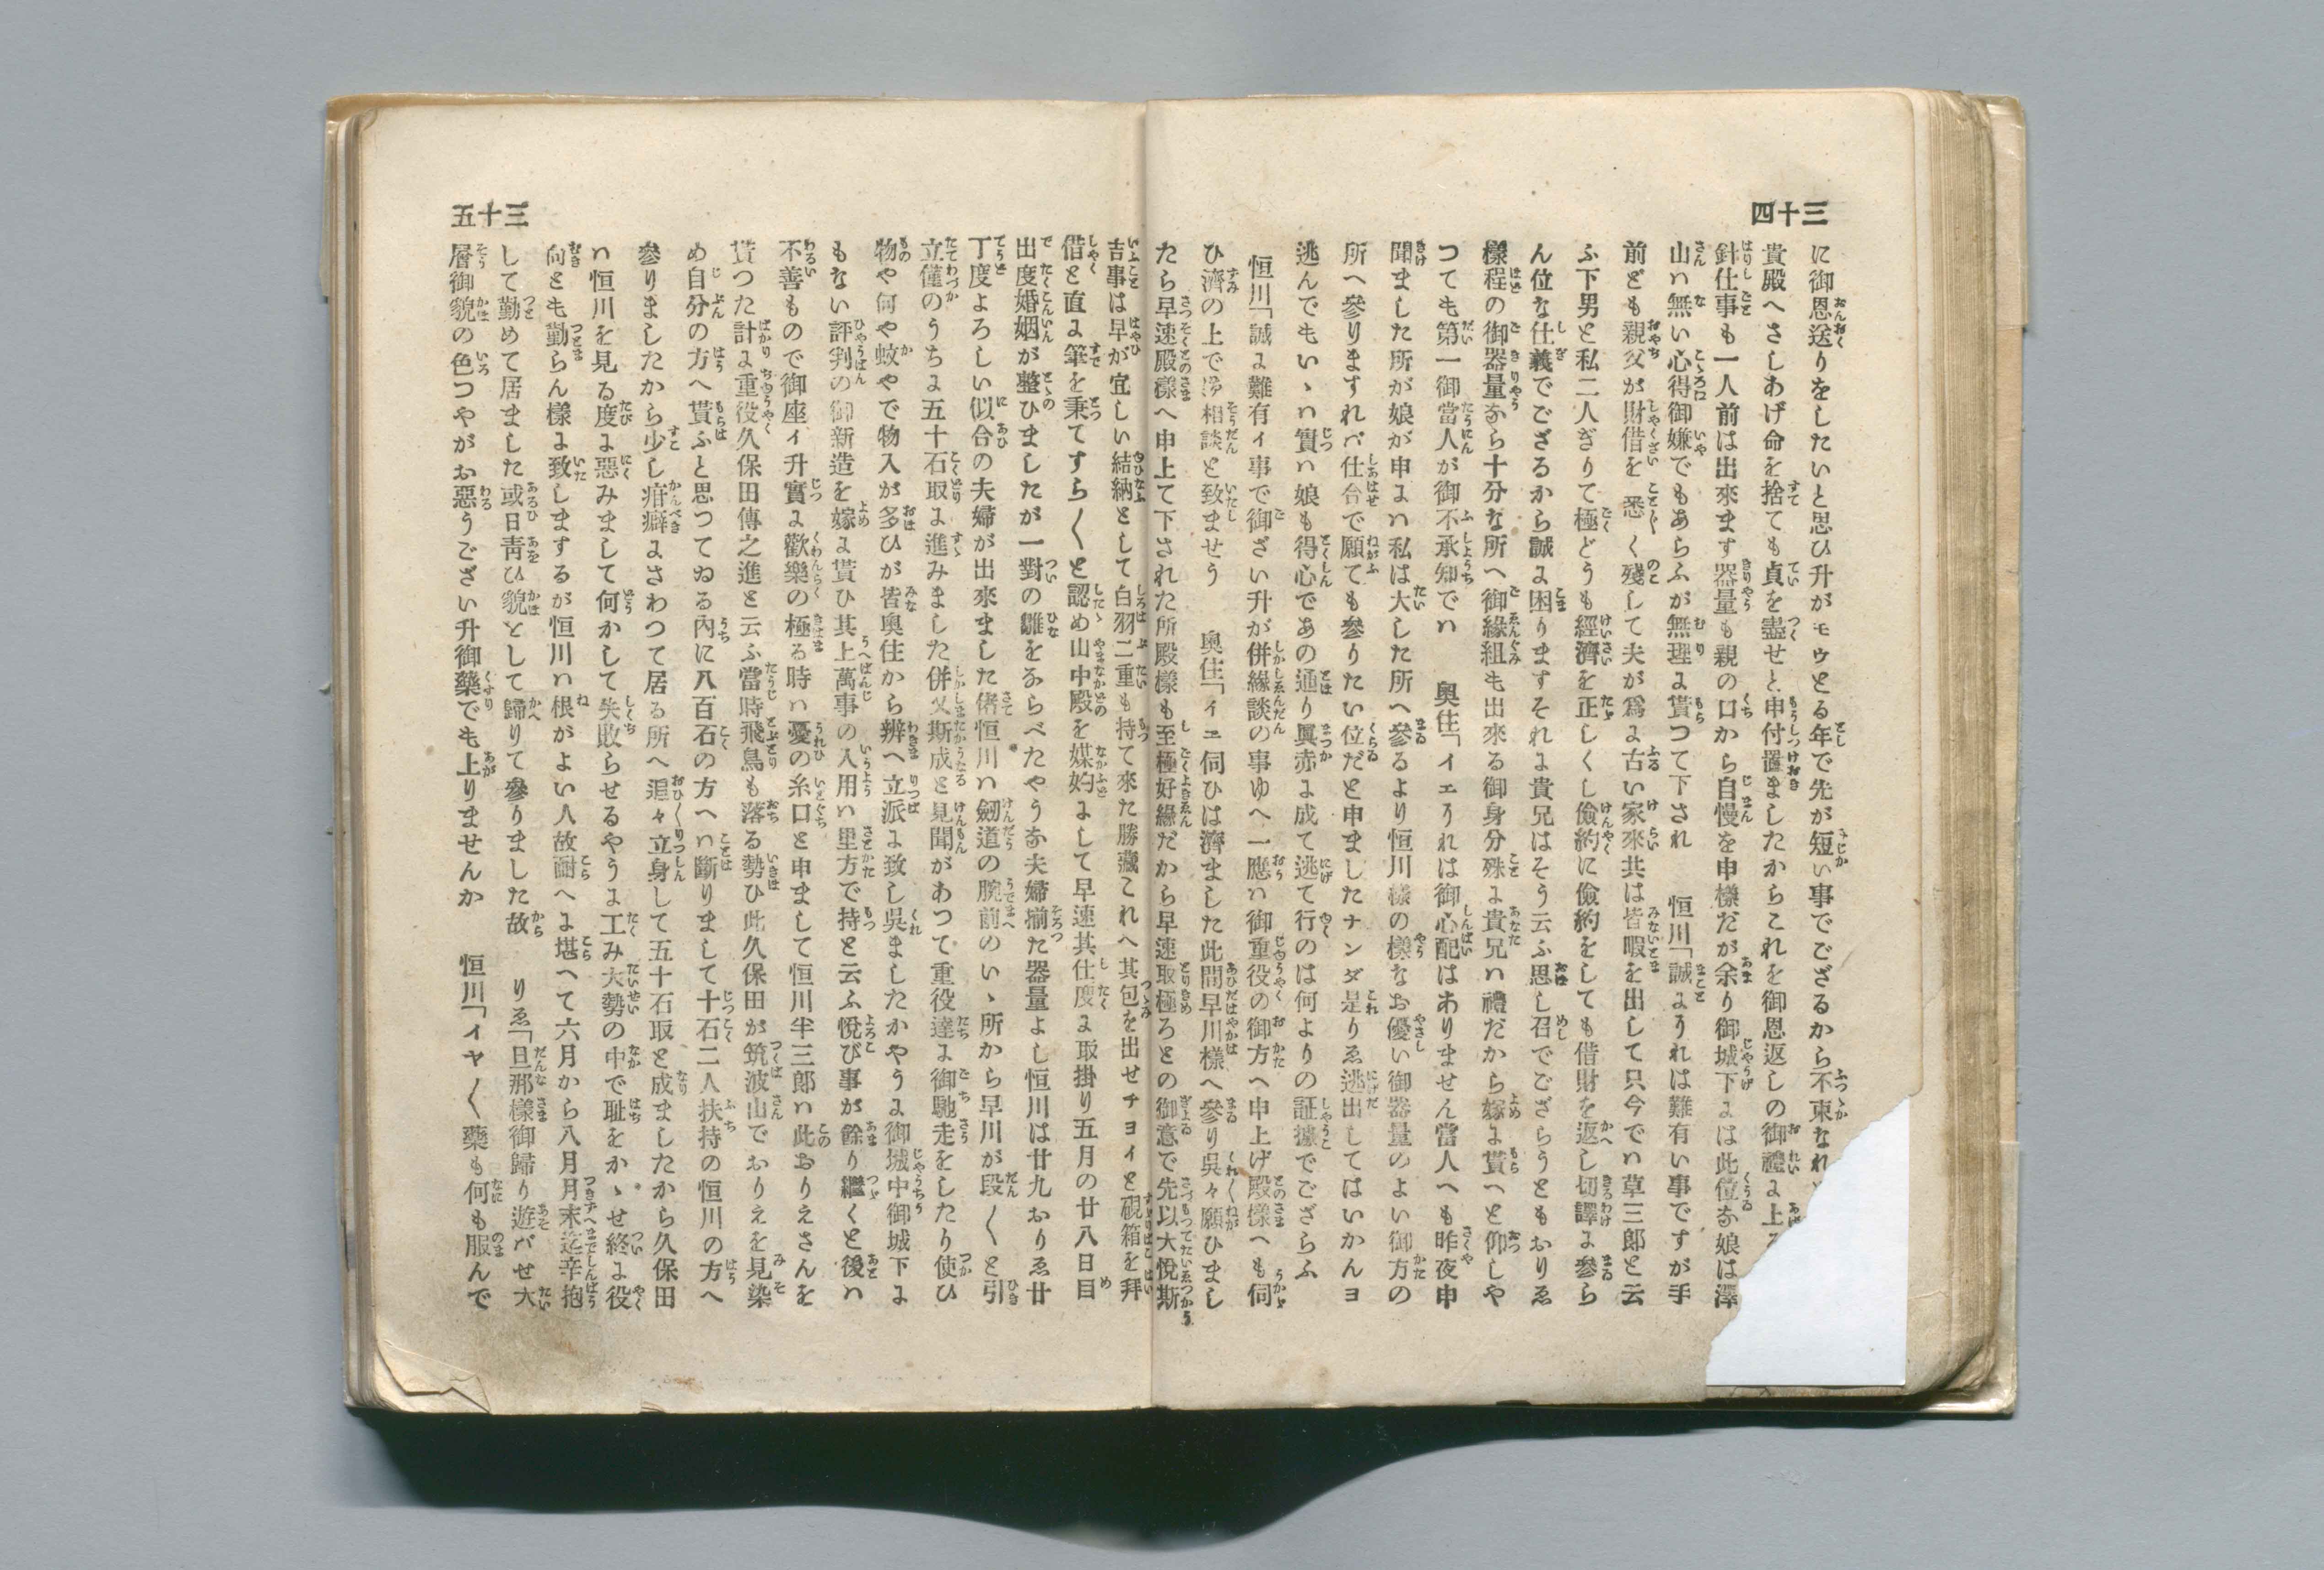 三十四
に御恩送りをしたいと思ひ升がモウとる年で先が短い事でござるから不束なれ
貴殿へさしあげ命を捨ても貞を盡せと申付置ましたからこれを御恩返しの御禮に上る
針仕事も一人前は出來ます器量も親の口から自慢を申樣だが余り御城下には此位な娘は澤
山ハ無い心得御嫌でもあらふが無理に貰つて下され　恒川「誠にうれは難有い事ですが手
前ども親父が財借を悉く殘して夫が爲に古い家來共は皆暇を出して只今でハ草三郎と云
ふ下男と私二人ぎりて極どうも經濟を正しくし儉約に儉約をしても借財を返し切譯に參ら
ん位な仕義でござるから誠に困りますそれに貴兄はそう云ふ思し召でござらうともおりゑ
樣程の御器量なら十分な所へ御緣組も出來る御身分殊に貴兄ハ禮だから嫁に貰へと仰しや
つても第一御當人が御不承知でハ　奥住「イエうれは御心配はありません當人へも昨夜申
聞ました所が娘が申にハ私は大した所へ參るより恒川樣の樣なお優い御器量のよい御方の
所へ參りますれバ仕合で願ても參りたい位だと申ましたナンダ是りゑ逃出してはいかんヨ
逃んでもいゝハ實ハ娘も得心であの通り眞赤に成て逃て行のは何よりの証據でござらふ
恒川「誠に難有ィ事で御ざい升が併緣談の事ゆへ一應ハ御重役の御方へ申上げ殿樣へも伺
ひ濟の上で御相談と致ませう　奥住「イエ伺ひは濟ました此間早川樣へ參り呉々願ひまし
たら早速殿樣へ申上て下された所殿樣も至極好緣だから早速取極ろとの御意で先以大悅斯
吉事は早が宜しい結納として白羽二重も持て來た勝藏これへ其包を出せチヨイと硯箱を拜
借と直に筆を秉てすら〱と認め山中殿を媒妁にして早速其仕度に取掛り五月の廿八日目
出度婚姻が整ひましたが一對の雛をならべたやうな夫婦揃た器量よし恒川は廿九おりゑ廿
丁度よろしい似合の夫婦が出來ました偖恒川ハ劒道の腕前のいゝ所から早川が段〱と引
立僅のうちに五十石取に進みました併父斯成と見聞があつて重役達に御馳走をしたり使ひ
物や何や蚊やで物入が多ひが皆奥住から辨へ立派に致し呉ましたかやうに御城中御城下に
もない評判の御新造を嫁に貰ひ其上萬事の入用ハ里方で持と云ふ悅び事が餘り繼くと後ハ
不善もので御座ィ升實に歡樂の極る時ハ憂の糸口と申まして恒川半三郎ハ此おりえさんを
貰つた計に重役久保田傳之進と云ふ當時飛鳥も落る勢ひ此久保田が筑波山でおりえを見染
め自分の方へ貰ふと思つてゐる內に八百石の方へハ斷りまして十石二人扶持の恒川の方へ
參りましたから少し疳癖にさわつて居る所へ追々立身して五十石取と成ましたから久保田
ハ恒川を見る度に惡みまして何かして失敗らせるやうに工み大勢の中で耻をかゝせ終に役
向とも勤らん樣に致しまするが恒川ハ根がよい人故耐へに堪へて六月から八月月末迄辛抱
して勤めて居ました或日靑ひ貌として歸りて參りました故　りゑ「旦那樣御歸り遊バせ大
層御貌の色つやがお惡うござい升御藥でも上りませんか　恒川「イヤ〱藥も何も服んで
三十五